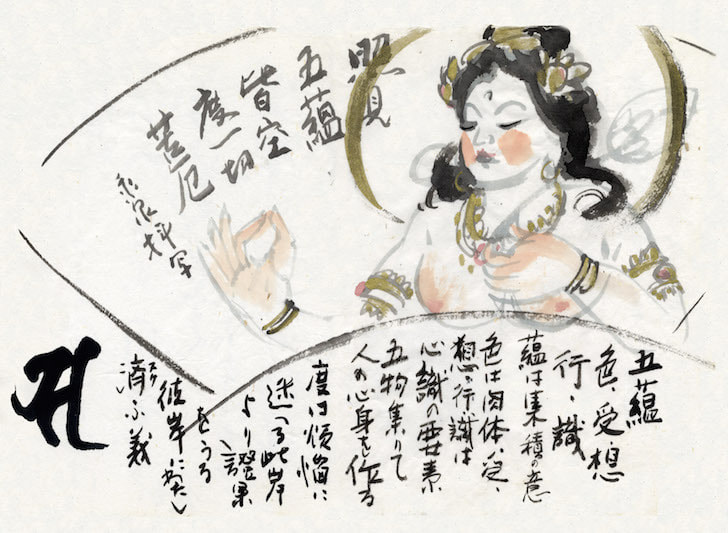 照見
五蘊
皆空
度一切
苦厄
拝写
五蘊
色、受、想
行、識
蘊は集積の意
色は肉体、受、
想、行、識は
心識の要素
五物集りて
人の心身を作る
度は煩悩に
迷へる此岸
より
をうる
彼岸にわたし
済ふ義